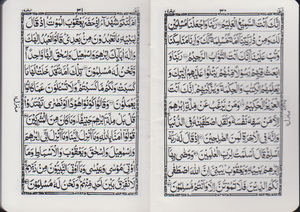 اِنَّكَ اَنْتَ السَّمِيْعُ الْعَلِيْمُ رَبَّنَا وَاجْعَلْنَا مُسْلِمَيْنِ
لَكَ وَمِنْ ذُرِّيَّتِنَا اُمَّةً مُّسْلِمَةً لَّكَ وَاَرِنَا مَنَاسِكَنَا
وَتُبْ عَلَيْنَا اِنَّكَ اَنْتَ التَّوَّابُ الرَّحِيْمُ رَبَّنَا
وَابْعَثْ فِيْهِمْ رَسُوْلًا مِّنْهُمْ يَتْلُوْا عَلَيْهِمْ اٰيٰتِكَ
وَيُعَلِّمُهُمُ الْكِتٰبَ وَالْحِكْمَةَ وَيُزَكِّيْهِمْ اِنَّكَ اَنْتَ
الْعَزِيْزُ الْحَكِيْمُ وَمَنْ يَّرْغَبُ عَنْ مِّلَّةِ اِبْرٰهٖمَ
اِلَّا مَنْ سَفِهَ نَفْسَهٗ وَلَقَدِ اصْطَفَيْنٰهُ فِى الدُّنْيَا
وَاِنَّهٗ فِى الْاٰخِرَةِ لَمِنَ الصّٰلِحِيْنَ اِذْ قَالَ لَهٗ رَبُّهٗ
اَسْلِمْ قَالَ اَسْلَمْتُ لِرَبِّ الْعٰلَمِيْنَ وَوَصّٰى بِهَا
اِبْرٰهٖمُ بَنِيْهِ وَيَعْقُوْبُ يٰبَنِىَّ اِنَّ اللّٰهَ اصْطَفٰى
لَكُمُ الدِّيْنَ فَلَا تَمُوْتُنَّ اِلَّا وَاَنْتُمْ مُّسْلِمُوْنَ
اَمْ كُنْتُمْ شُهَدَآءَ اِذْ حَضَرَ يَعْقُوْبَ الْمَوْتُ اِذْ قَالَ
لِبَنِيْهِ مَا تَعْبُدُوْنَ مِنْ بَعْدِىْ قَالُوْا نَعْبُدُ اِلٰهَكَ
وَاِلٰهَ اٰبَآئِكَ اِبْرٰهٖمَ وَاِسْمٰعِيْلَ وَاِسْحٰقَ اِلٰهًا وَّاحِدًا
وَّنَحْنُ لَهٗ مُسْلِمُوْنَ تِلْكَ اُمَّةٌ قَدْ خَلَتْ لَهَا مَا
كَسَبَتْ وَلَكُمْ مَّا كَسَبْتُمْ وَلَا تُسْئَلُوْنَ عَمَّا كَانُوْا
يَعْمَلُوْنَ وَقَالُوْا كُوْنُوْا هُوْدًا اَوْ نَصٰرٰى تَهْتَدُوْا
قُلْ بَلْ مِلَّةَ اِبْرٰهٖمَ حَنِيْفًا وَمَا كَانَ مِنَ الْمُشْرِكِيْنَ
قُوْلُوْا اٰمَنَّا بِاللّٰهِ وَمَا اُنْزِلَ اِلَيْنَا وَمَا اُنْزِلَ اِلٰى اِبْرٰهٖمَ
وَاِسْمٰعِيْلَ وَاِسْحٰقَ وَيَعْقُوْبَ وَالْاَسْبَاطِ وَمَا
اُوْتِىَ مُوْسٰى وَعِيْسٰى وَمَا اُوْتِىَ النَّبِيُّوْنَ مِنْ رَّبِّهِمْ
لَا نُفَرِّقُ بَيْنَ اَحَدٍ مِّنْهُمْ وَنَحْنُ لَهٗ مُسْلِمُوْنَ